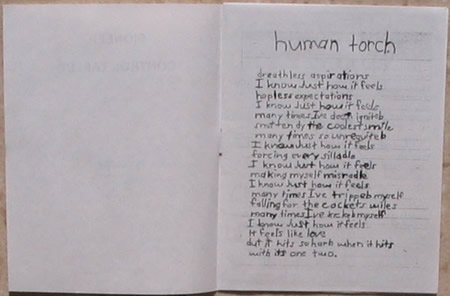 human torch
dreathless aspirations
I know Just how it feels
hopless expectations
I know Just how it feels
many times Ive deen igniteb
smitten dy the coolest smile
many times so unrequiteb
I know Just how it feels
forcing every silladle
I know Just how it feels
making myself misradle
I know Just how it feels
many times I've trippeb myself
falling for the cockets wiles
many times I've kickeb myself
I know Just how it feels
it feels like love
dut it hits so harb when it hits
with its one two.